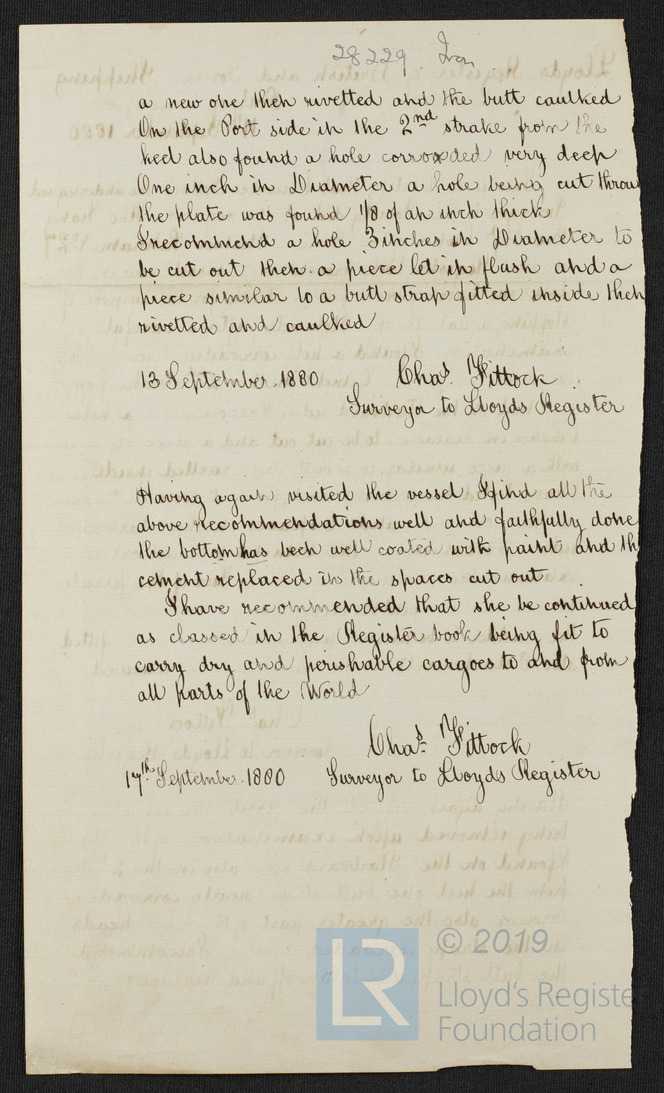 28229. Iron
a new one then rivetted and the butt caulked
On the Port side in the 2nd strake from the
keel also found a hole corroded very deep
One inch in Diameter a hole being cut throu
the plate was found 1/8 of an inch thick
I recommend a hole 3 inches in Diameter to
be cut out then a piece let in flush and a
piece similar to a butt strap fitted inside then
rivetted and caulked
13 September. 1880
Chas. Fittock
Surveyor to Lloyds Register
Having again visited the vessel I find all the
above recommendations well and faithfully done
the bottom has been well coated with paint and th
cement replaced in the spaces cut out
I have recommended that she be continued
as classed in the Register book being fit to
carry dry and perishable cargoes to and from
all parts of the World
Chas. Fittock
17th September. 1880
Surveyor to Lloyds Register
LR
© 2019
Lloyd's Registe
Foundation